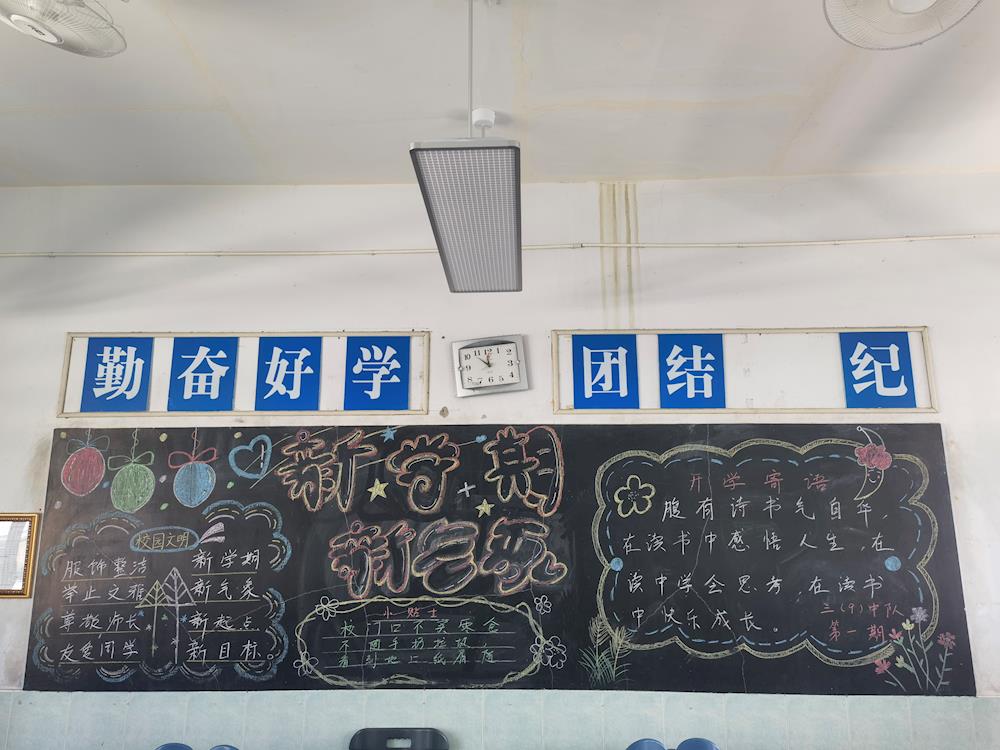 勤奋好学
团结 纪
10 11 12 1 2 3 4 5 6 7 8 9
新学期
校园文明
服饰整洁
举止文雅
尊敬师长
友爱同学
新学期
新气象
新起点
新目标。
小贴士
校门口不买零食
开学寄语
腹有诗书气自华
在读书中感悟人生，在
读中学会思考，在读书
中快乐成长。
三(9)中队
第一期